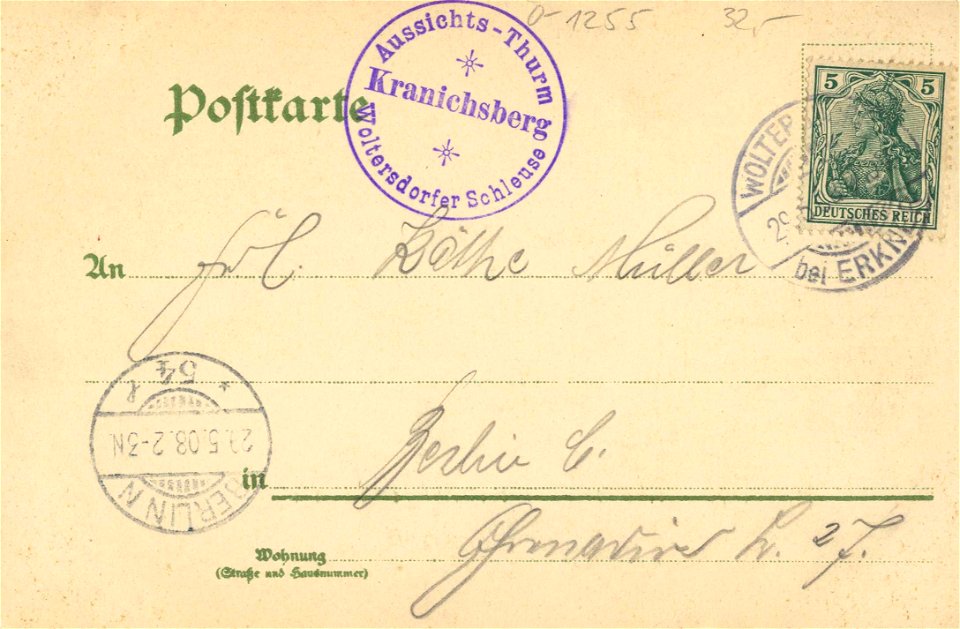 0-1255 32,-
Aussichts-Thurm
Kranichsberg
Woltersdorfer Schleuse
Postkarte
5 5
DEUTSCHES REICH
WOLTER
29.
bei ERKN
An Frl. Käthe Müller
* 54 l
29.5.08.2-3N.
BERLIN N
in Berlin C.
Wohnung
(Straße und Hausnummer)
Grenadier Str. 27.